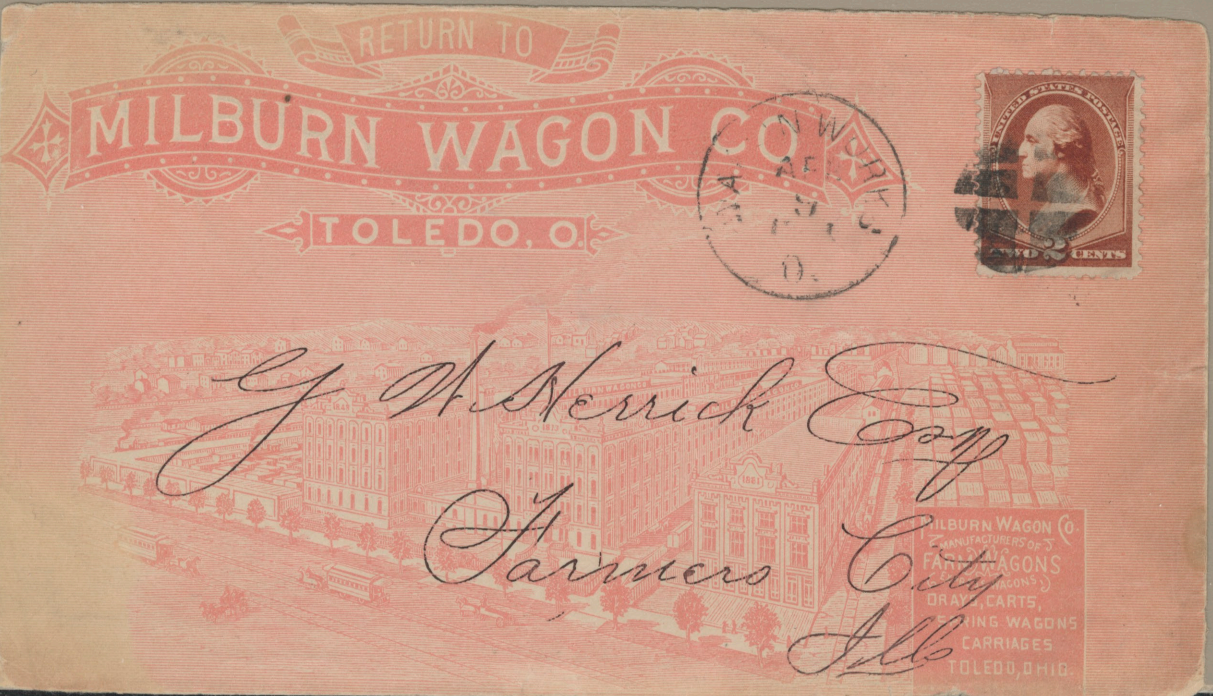 RETURN TO
MILBURN WAGON CO
TOLEDO, O.
WAGON WORKS
APR
9
O.
UNITED STATES POSTAGE
TWO 2 CENTS
G W. Herrick Esq
Farmers City
Ills
1881
MILBURN WAGON CO.
MANUFACTURERS OF
FARM WAGONS
WAGONS,
DRAYS, CARTS,
SPRING WAGONS
CARRIAGES
TOLEDO, OHIO.